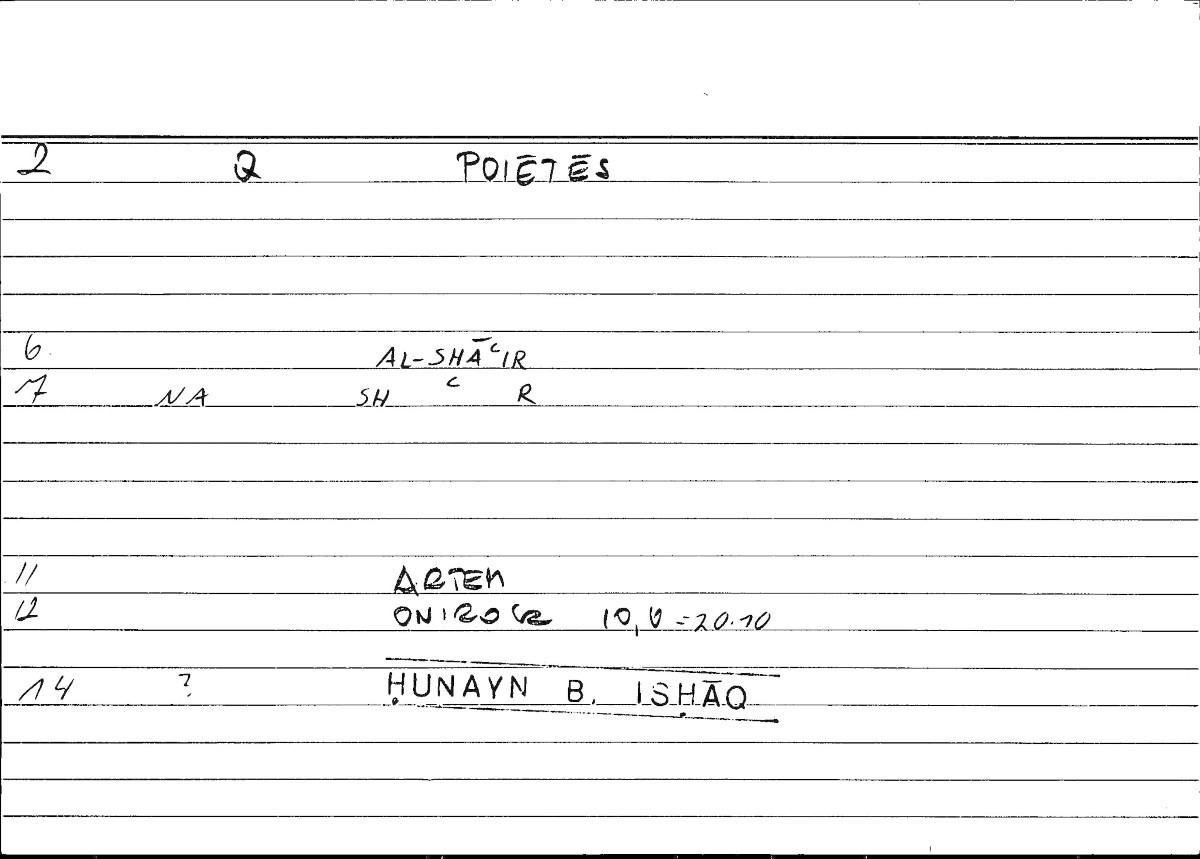 2 Q POIĒTĒS
6. AL-SHĀʿIR
7 NA SH ʿ R
11 ARTEM
12 ONIROCR 10,6 = 20.10
14 ? ḤUNAYN B. ISḤĀQ